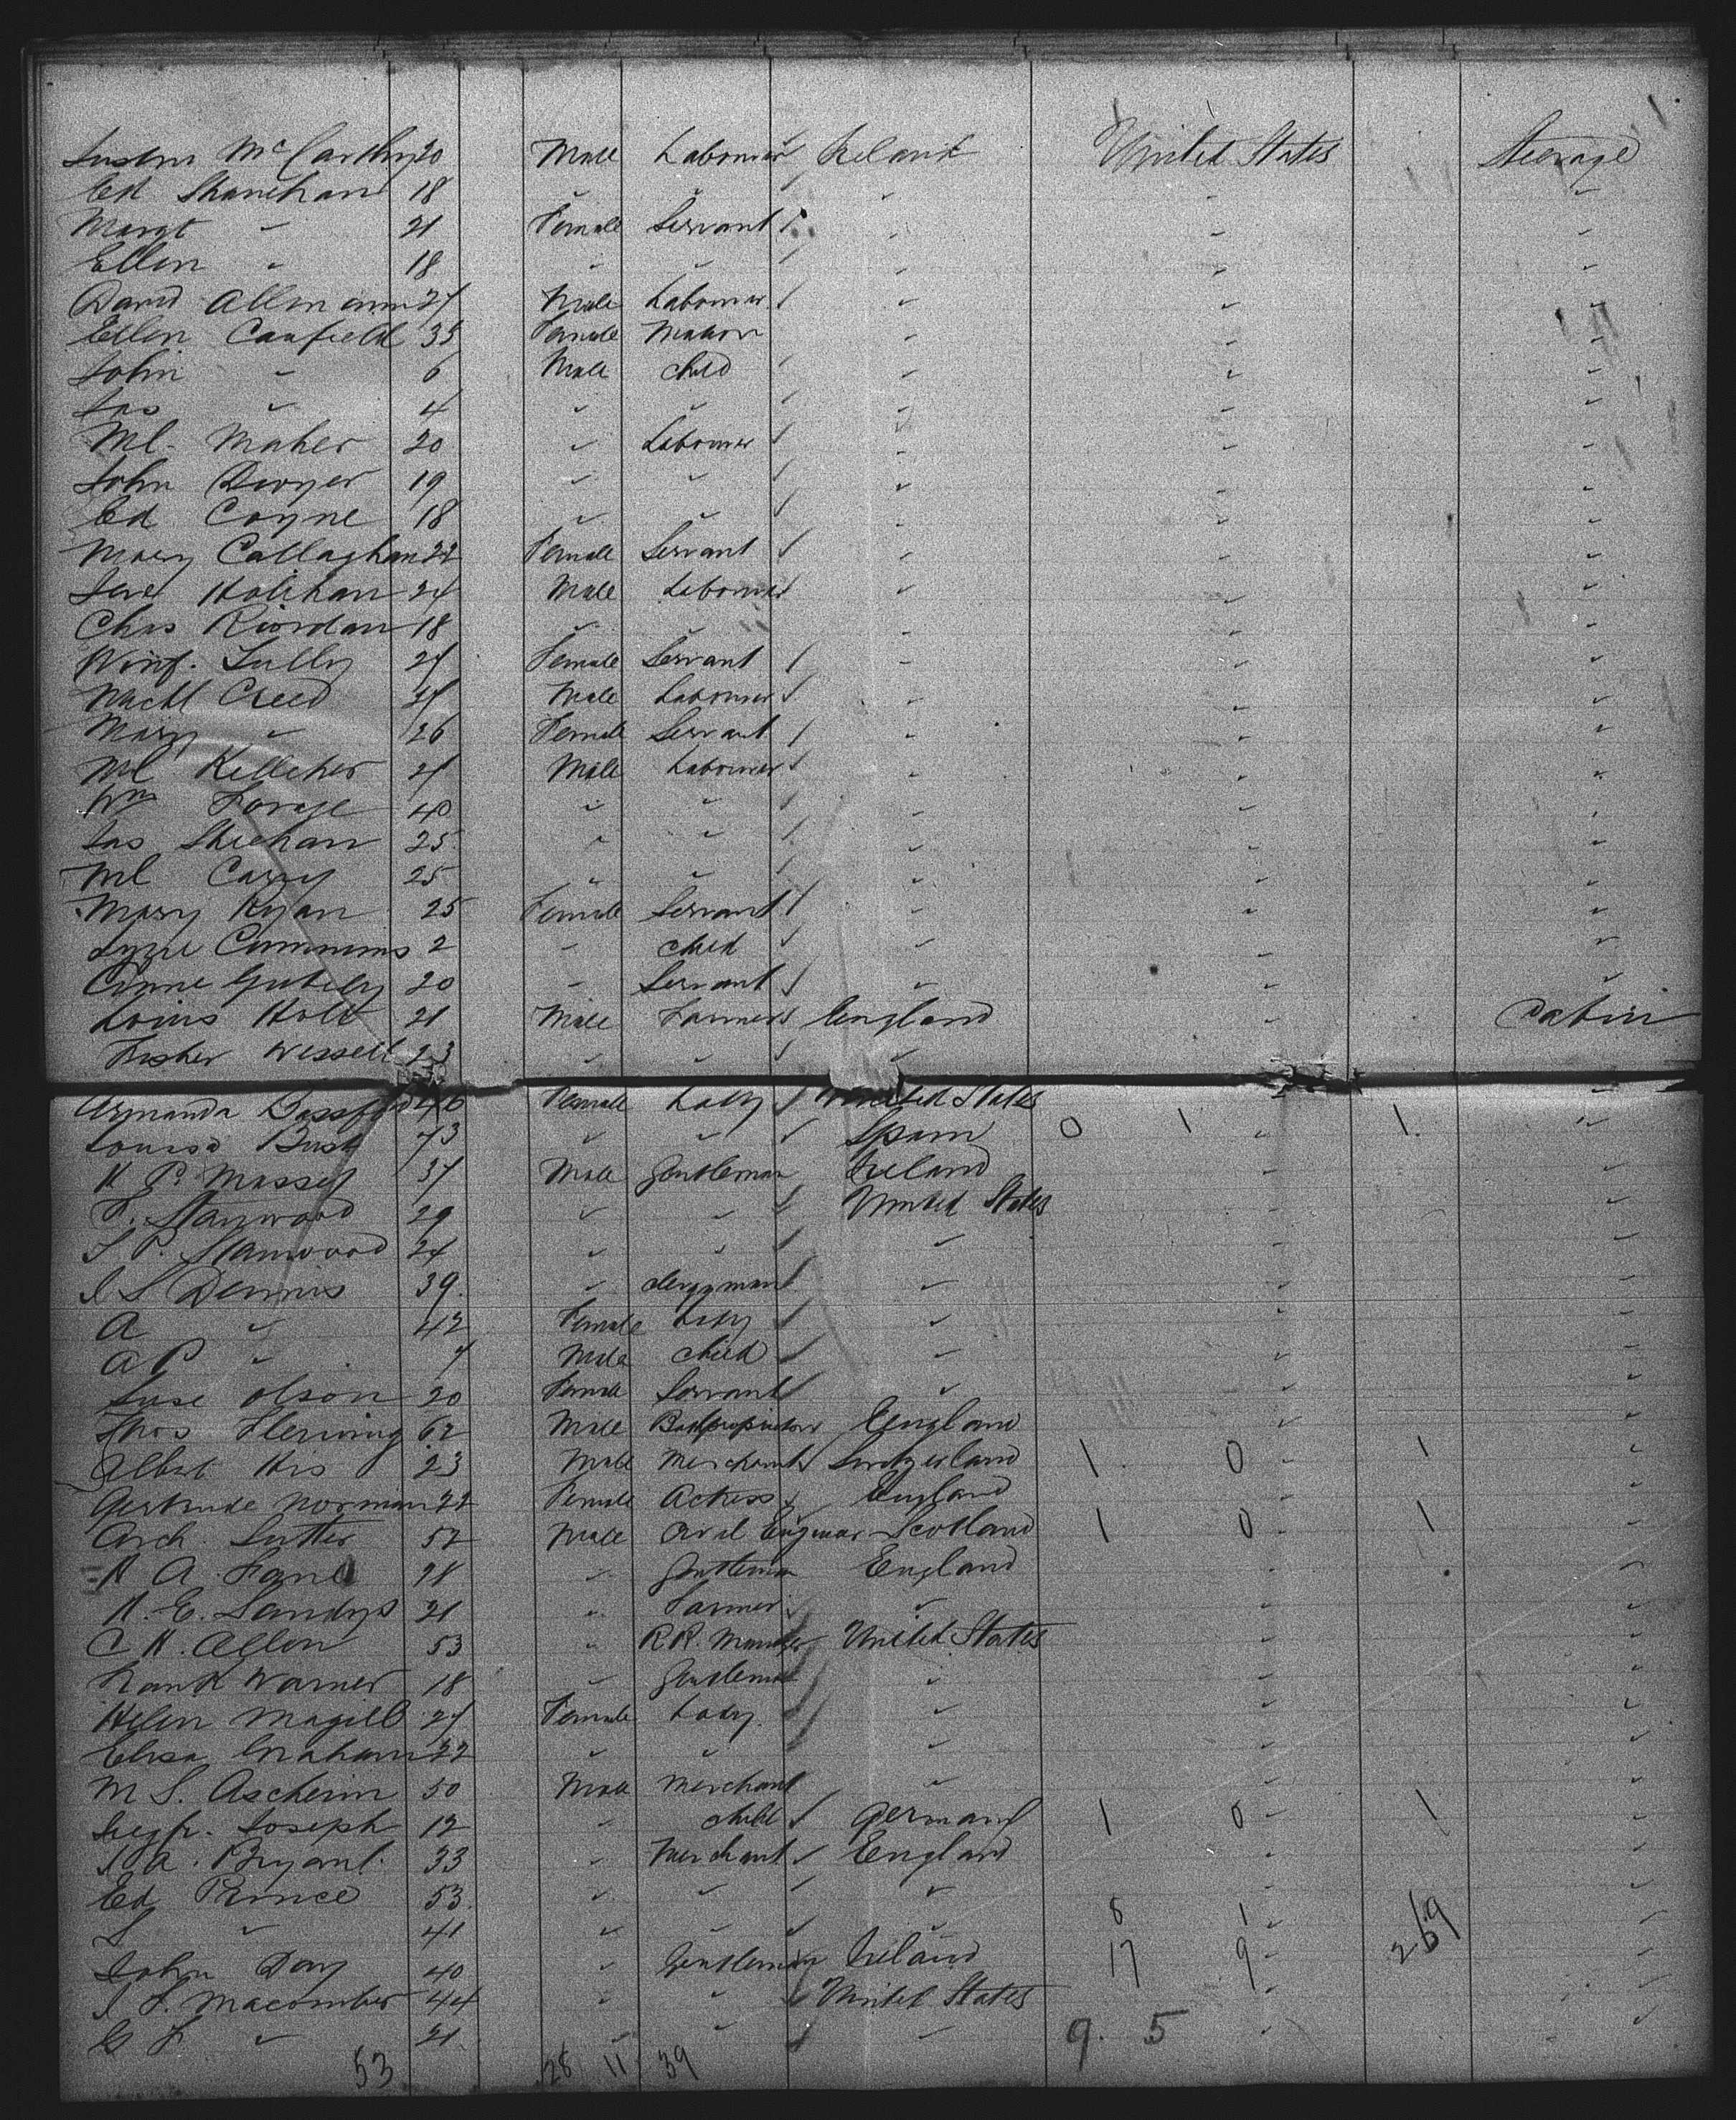 Justin McCarthy 20 Male Labourer Ireland United States Steerage
Ed Shanahan 18 " " " " "
Margt " 21 Female Servant " " "
Ellen " 18 " " " " "
David Allmann 24 Male Labourer " " "
Ellen Canfield 35 Female Matron " " "
John " 6 Male child " " "
Jas " 4 " " " " "
Ml. Maher 20 " Labourer " " "
John Dwyer 19 " " " " "
Ed Coyne 18 " " " " "
Mary Callaghan 22 Female Servant " " "
Holihan 24 Male Labourer " " "
Chas Riordan 18 " " " "
Winf. Tully 24 Female Servant " " "
Creed 24 Male Labourer " " "
Mary " 26 Female Servant " " "
Ml Kelleher 24 Male Labourer " " "
Wm 40 " " " " "
Jas Sheehan 25 " " " " "
Ml Carey 25 " " " " "
Mary Ryan 25 Female Servant " " "
Lizzie Cummins 2 " child " " "
20 " Servant " " "
Louis Holt 21 Male Farmer England " Cabin
Fisher Wessell 23 " " "
Armanda 46 Female Lady United States " "
Louisa Bush 73 " " Spain 0 1 " 1 "
H P. Massey 37 Male Gentleman Ireland " "
F. Stanwood 29 " " United States " "
S P. Stanwood 24 " " " " "
J S Dennis 39 " clergyman " " "
A " 42 Female Lady " " "
A P " 7 Male child " " "
Olson 20 Female Servant " " "
Thos Fleming 62 Male England " "
Albert His 23 Male Merchant Switzerland 1 0 " 1 "
Gertrude Norman 22 Female Actress England " "
Arch. Sutter 52 Male Civil Engineer Scotland 1 0 " 1 "
H A. Lane 28 " Gentleman England " "
H. E. Sandys 21 " Farmer " " "
C H. Allen 53 " R R. Manager United States " "
Frank Warner 18 " Gentleman " " "
Helen Magill 27 Female Lady " " "
Elisa Graham 22 " " " " "
M S. Ascheim 50 Male Merchant " " "
Joseph 12 " child Germany 1 0 " 1 "
J A. Bryant 33 " Merchant England " "
Ed Prince 53 " " " " "
S " 41 " " " 8 1 " "
John Day 40 " Gentleman Ireland 17 9 " 269 "
J F. Macomber 44 " " United States " "
G F " 21 " " " 9. 5 " "
53 28 11 39